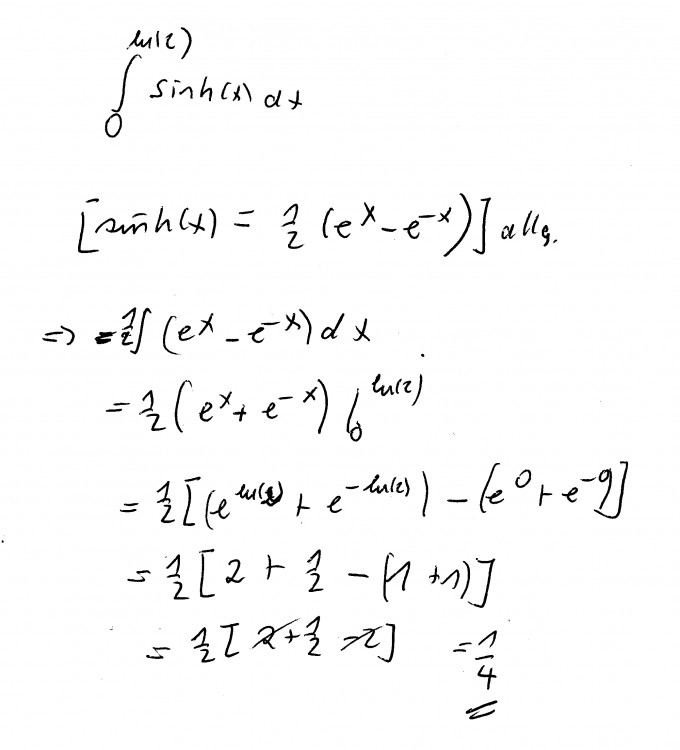 ∫₀^ln(2) sinh(x) dx
[sinh(x) = 1/2 (e^x - e^-x)] allg.
=> = 1/2 ∫ (e^x - e^-x) dx
= 1/2 (e^x + e^-x) |₀^ln(2)
= 1/2 [(e^ln(2) + e^-ln(2)) - (e^0 + e^-0)]
= 1/2 [2 + 1/2 - (1 + 1)]
= 1/2 [2 + 1/2 - 2] = 1/4